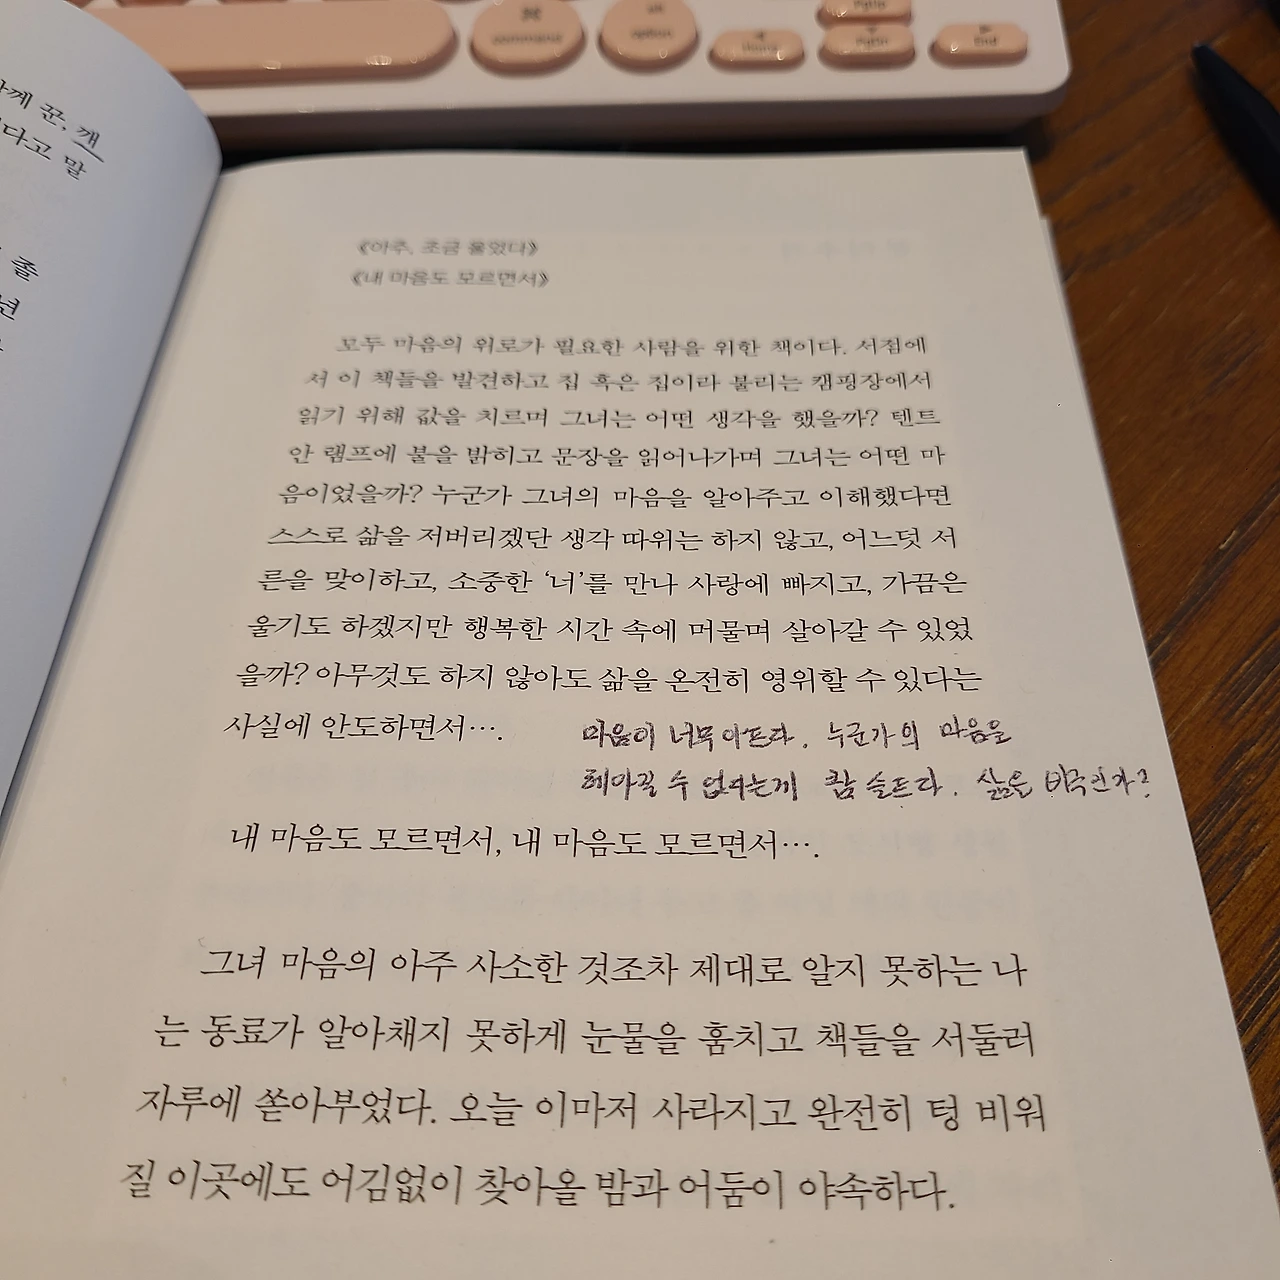 command
option
end
꾼, 깨
다고 말
졸
년
《아주, 조금 울었다》
《내 마음도 모르면서》
모두 마음의 위로가 필요한 사람을 위한 책이다. 서점에
서 이 책들을 발견하고 집 혹은 집이라 불리는 캠핑장에서
읽기 위해 값을 치르며 그녀는 어떤 생각을 했을까? 텐트
안 램프에 불을 밝히고 문장을 읽어나가며 그녀는 어떤 마
음이었을까? 누군가 그녀의 마음을 알아주고 이해했다면
스스로 삶을 저버리겠단 생각 따위는 하지 않고, 어느덧 서
른을 맞이하고, 소중한 ‘너’를 만나 사랑에 빠지고, 가끔은
울기도 하겠지만 행복한 시간 속에 머물며 살아갈 수 있었
을까? 아무것도 하지 않아도 삶을 온전히 영위할 수 있다는
사실에 안도하면서….
마음이 너무 아프다. 누군가의 마음을
헤아릴 수 없다는게 참 슬프다. 삶은 비극인가?
내 마음도 모르면서, 내 마음도 모르면서….
그녀 마음의 아주 사소한 것조차 제대로 알지 못하는 나
는 동료가 알아채지 못하게 눈물을 훔치고 책들을 서둘러
자루에 쏟아부었다. 오늘 이마저 사라지고 완전히 텅 비워
질 이곳에도 어김없이 찾아올 밤과 어둠이 야속하다.